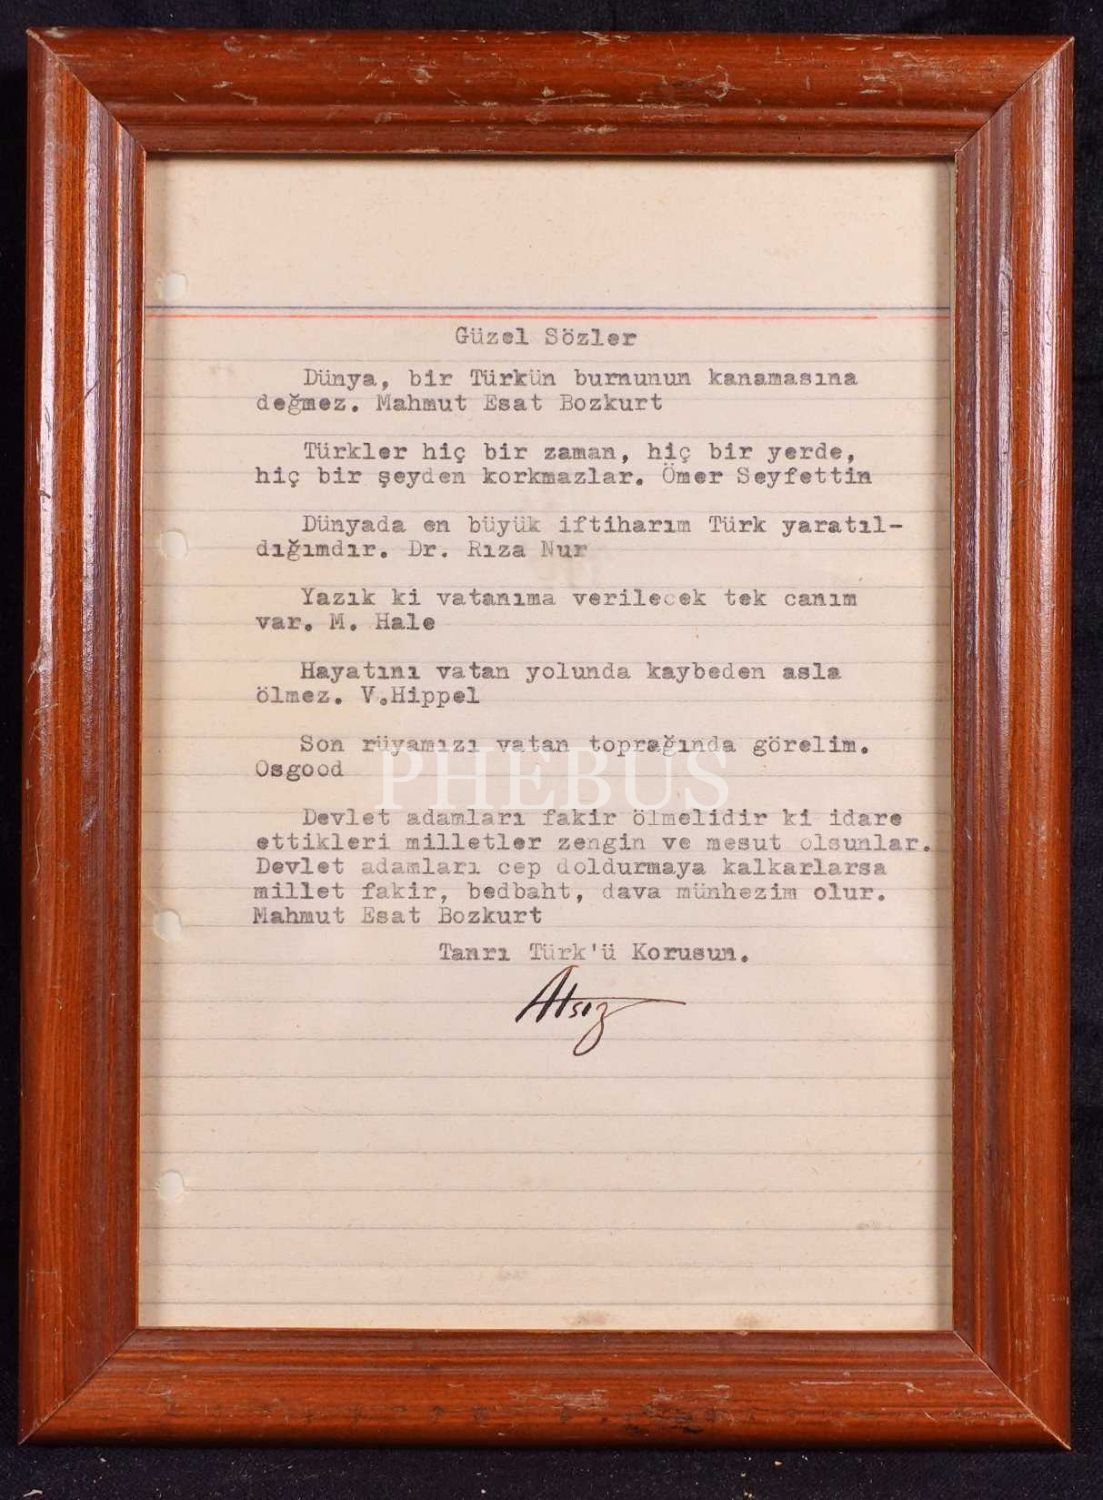 Güzel Sözler
Dünya, bir Türkün burnunun kanamasına
değmez. Mahmut Esat Bozkurt
Türkler hiç bir zaman, hiç bir yerde,
hiç bir şeyden korkmazlar. Ömer Seyfettin
Dünyada en büyük iftiharım Türk yaratıl-
dığımdır. Dr. Rıza Nur
Yazık ki vatanıma verilecek tek canım
var. M. Hale
Hayatını vatan yolunda kaybeden asla
ölmez. V.Hippel
Son rüyamızı vatan toprağında görelim.
Osgood
PHEBUS
Devlet adamları fakir ölmelidir ki idare
ettikleri milletler zengin ve mesut olsunlar.
Devlet adamları cep doldurmaya kalkarlarsa
millet fakir, bedbaht, dava münhezim olur.
Mahmut Esat Bozkurt
Tanrı Türk'ü Korusun.
Atsız